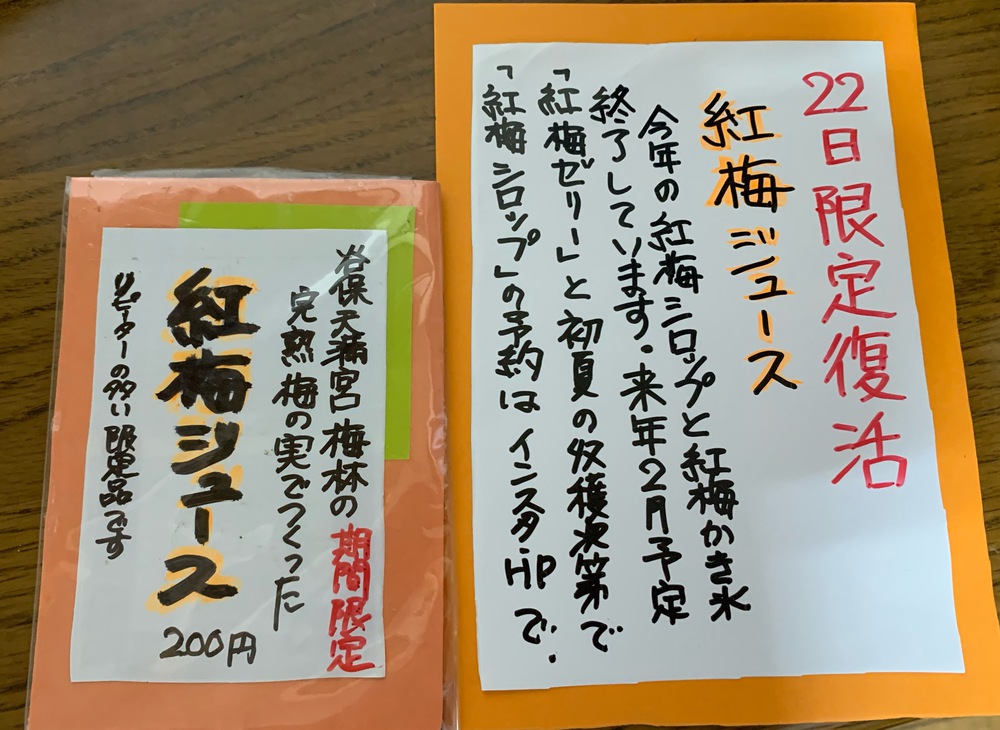 22日限定復活
紅梅ジュース
今年の紅梅シロップと紅梅かき氷
終了しています。来年2月予定
「紅梅ゼリー」と初夏の収穫次第で
「紅梅シロップ」の予約はインスタ・HPで。
谷保天満宮梅林の期間限定
完熟梅の実でつくった
紅梅ジュース
200円
リピーターの多い限定品です